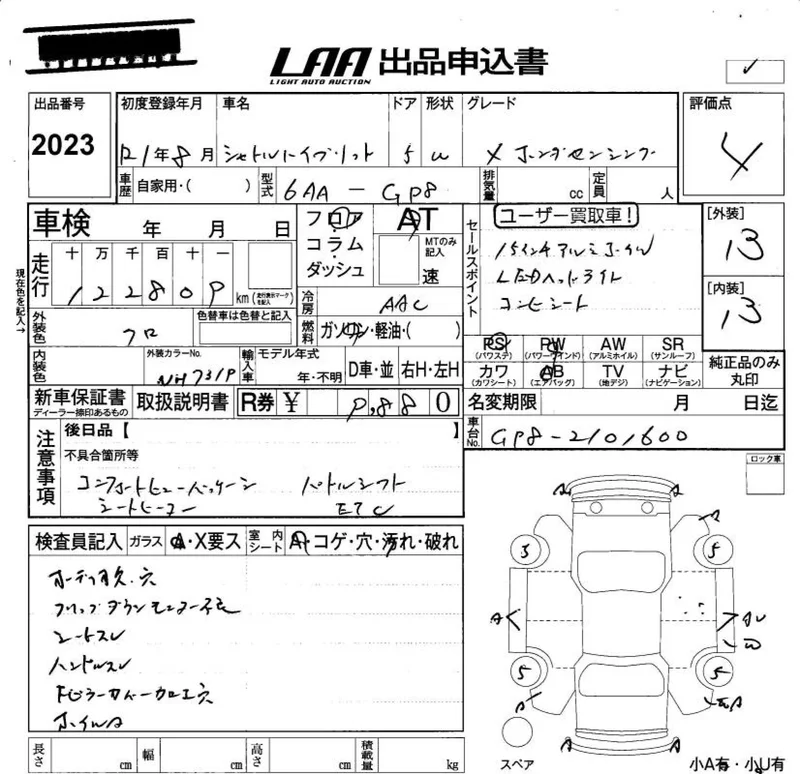 LAA 出品申込書
LIGHT AUTO AUCTION
出品番号 2023
初度登録年月 R1年8月
車名 シャトルハイブリット
ドア 5
形状 W
グレード X ホンダセンシング
評価点 4
車歴 自家用・( )
型式 6AA-GP8
排気量 cc
定員 人
車検 年 月 日
フロア コラム・ダッシュ
AT
MTのみ記入 速
セールスポイント
ユーザー買取車!
15インチアルミホイル
LEDヘッドライト
コンビシート
[外装] 13
[内装] 13
現在色を記入→
走行 十 万 千 百 十 一
122809 km
(走行表示マークを記入)
冷房 AAC
燃料 ガソリン・軽油・( )
外装色 クロ
色替車は色替と記入
内装色
外装カラーNo. NH731P
輸入車 モデル年式 年・不明 D車・並 右H・左H
PS (パワステ) PW (パワーウインド) AW (アルミホイル) SR (サンルーフ)
カワ (カワシート) AB (エアバッグ) TV (地デジ) ナビ (ナビゲーション)
純正品のみ丸印
新車保証書 ディーラー捺印あるもの
取扱説明書
R券 ¥ 9,880
名変期限 月 日迄
車台No. GP8-2101600
注意事項
後日品【 】
不具合箇所等
コンフォートビューパッケージ パドルシフト
シートヒーター ETC
ロック車
検査員記入 ガラス A・X要ス 室内シート A・コゲ・穴・汚れ・破れ
フリップダウンモニター
シートスレ
ハンドルスレ
ホイルA
A A
A
3 5
A AU
W
5 5
A
A A
スペア
長さ cm 幅 cm 高さ cm 積載量 kg
小A有・小U有